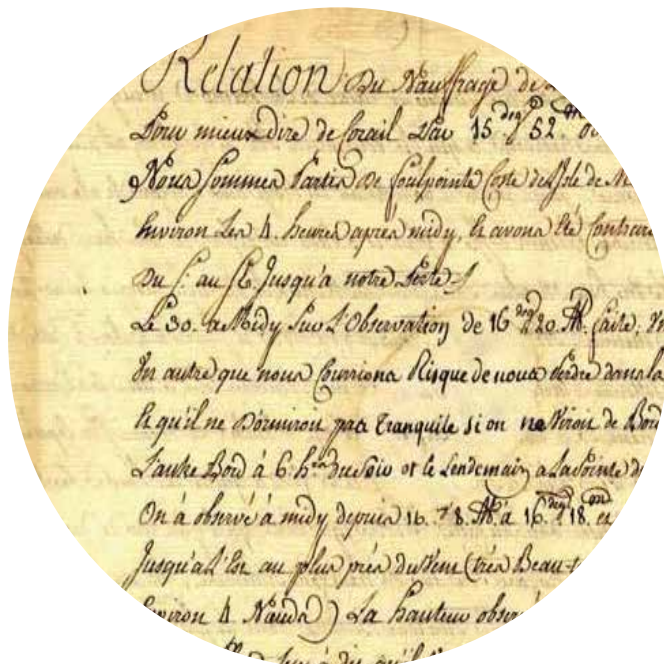 Relation Du Naufrage de
Pour mieux dire de Corail par 15 deg 52 m
Nous sommes Partis de foulpointe Coste de l'Isle de M
Environ Les 4. heures après midy, et avons été
Du S. au SE. Jusqu'a notre Perte
Le 30. a Midy Sur L'Observation de 16 deg 20 M. faite,
un autre que nous Courrions Risque de nous Perdre dans la
et qu'il ne Dormiroit pas Tranquile si on ne Viroit de Bord
L'autre Bord à 6 hres du Soir et le Lendemain a La Pointe d
On à observé à midy depuis 16. 8. M. à 16 deg 18 m et
Jusqu'a l'Est au plus près du Vent (très Beau-t
Environ 4 Nœuds) La hauteur obser